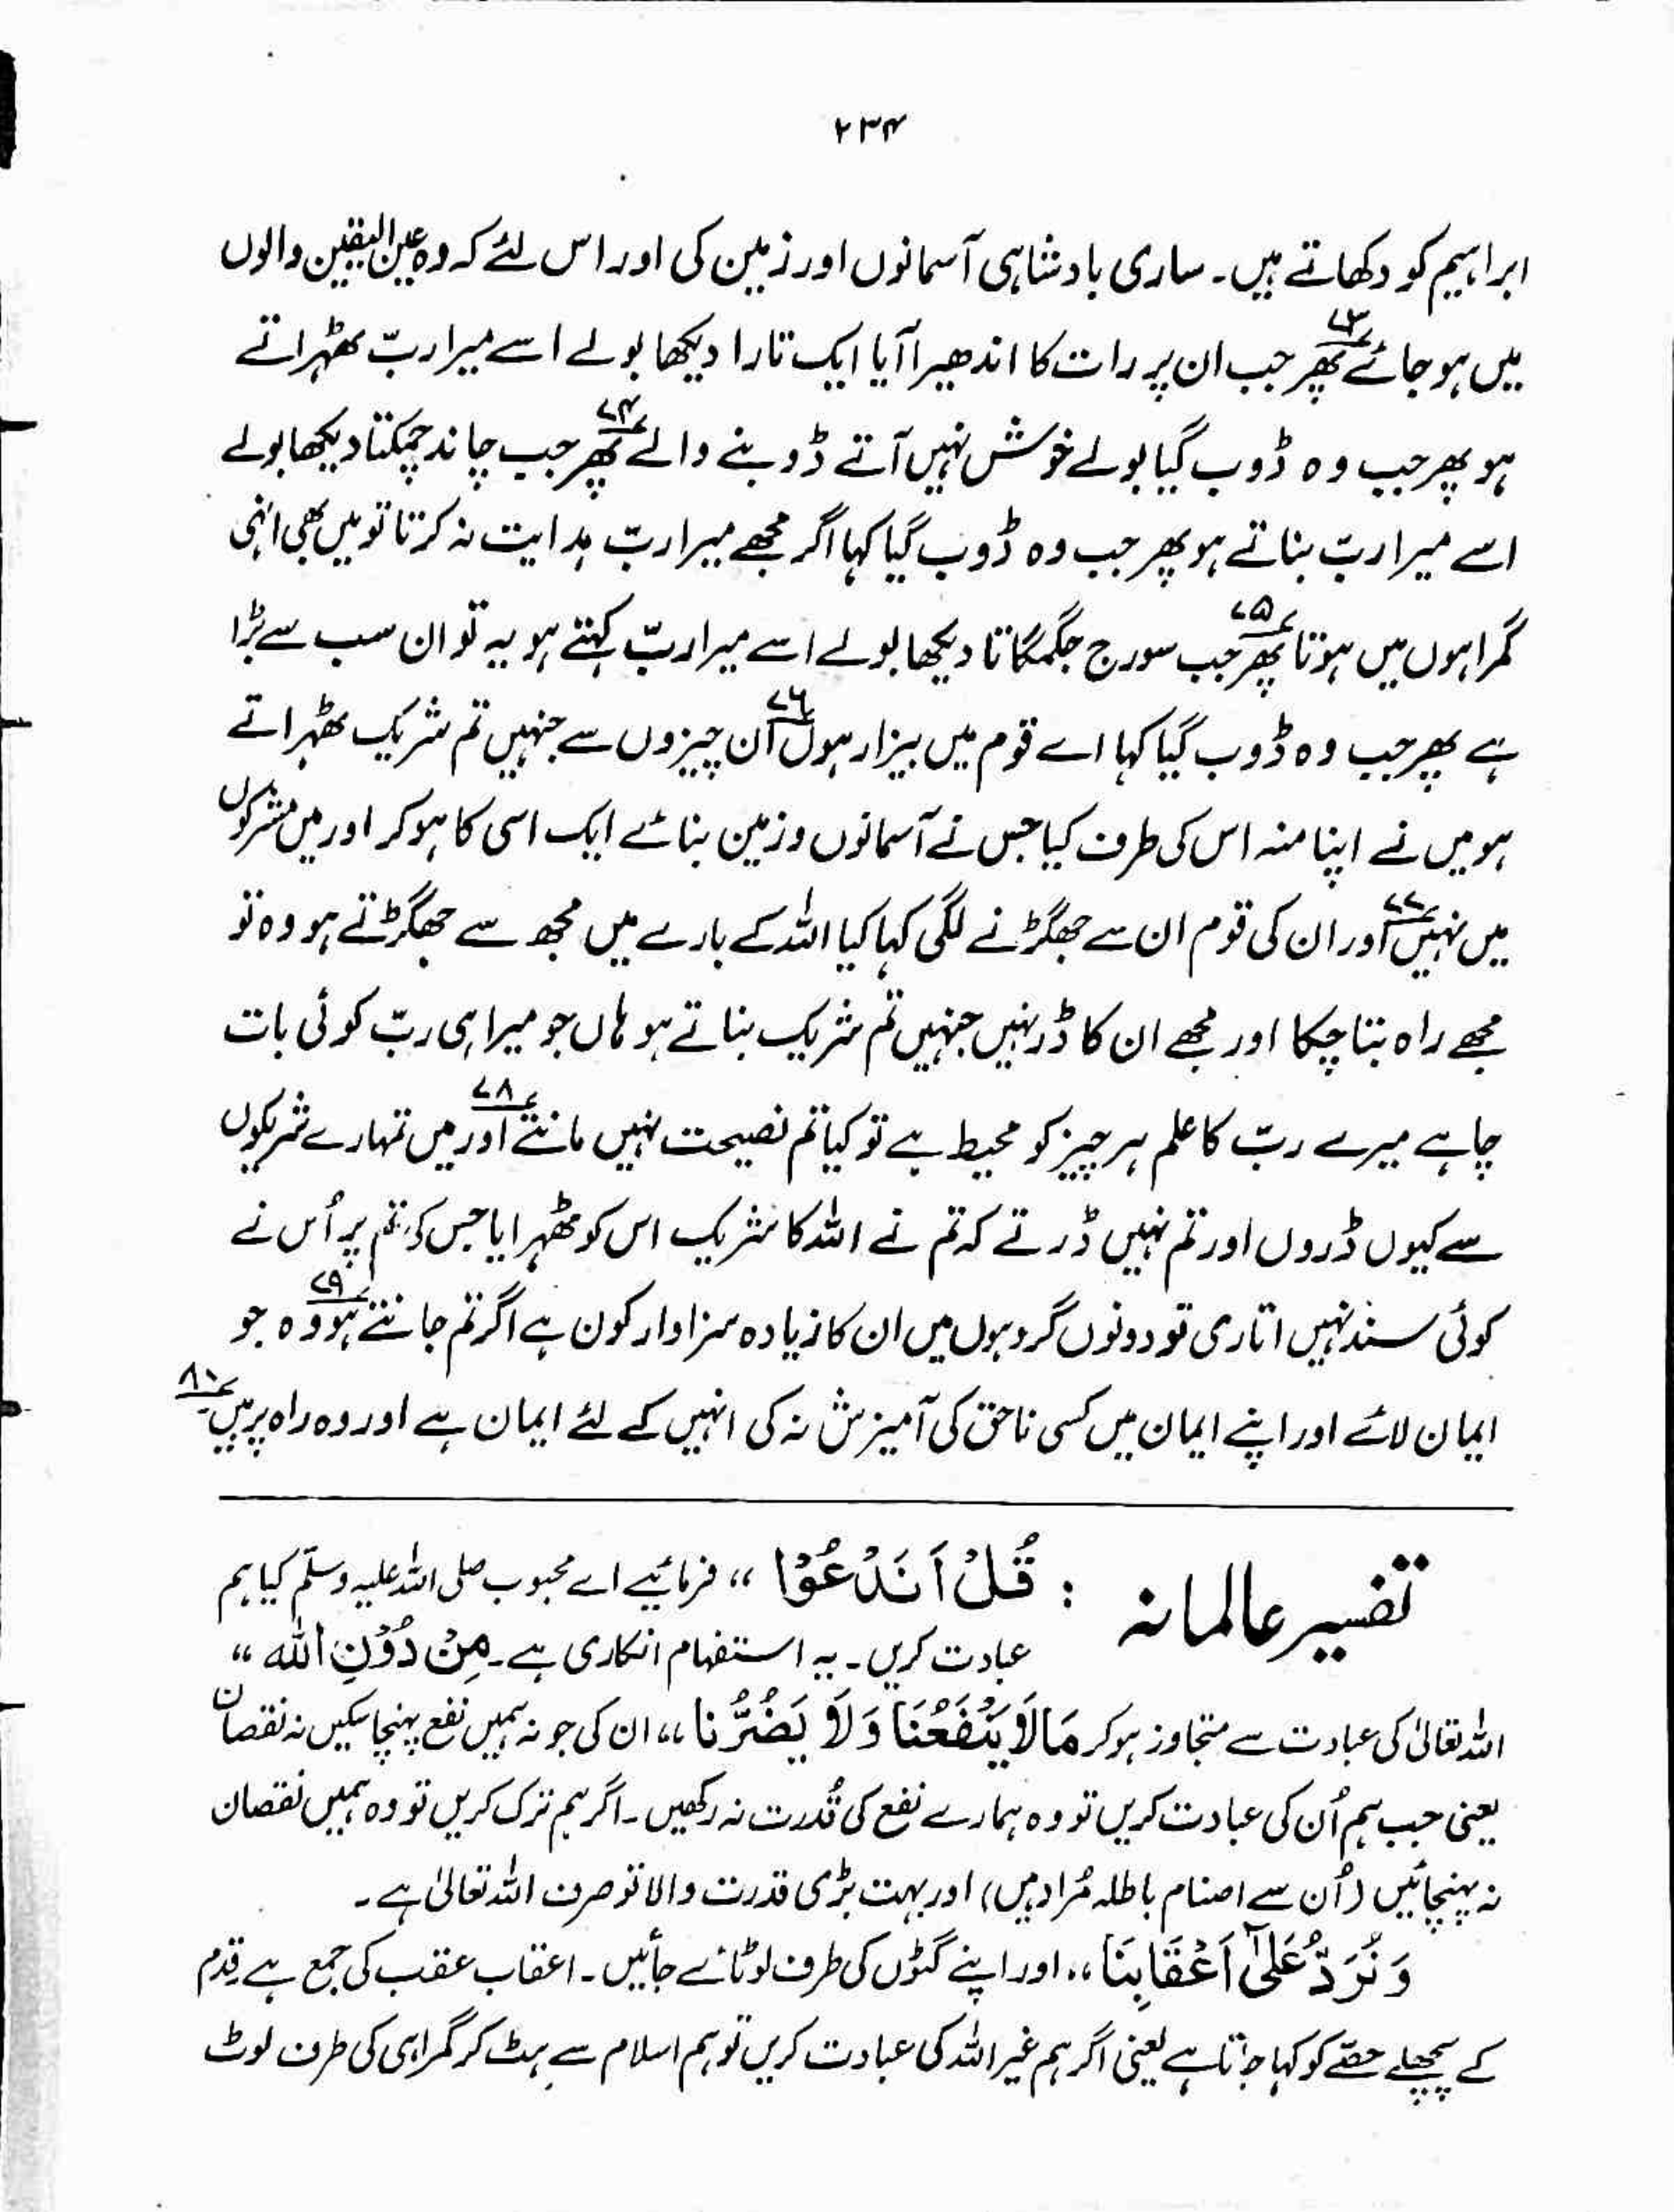 ۲۳۴
ابراہیم کو دکھاتے ہیں۔ ساری بادشاہی آسمانوں اور زمین کی اور اس لئے کہ وہ عین الیقین والوں
میں ہو جائے ۷۳؎ پھر جب ان پر رات کا اندھیرا آیا ایک تارا دیکھا بولے اسے میرا ربّ ٹھہراتے
ہو پھر جب وہ ڈوب گیا بولے خوش نہیں آتے ڈوبنے والے ۷۴؎ پھر جب چاند چمکتا دیکھا بولے
اسے میرا ربّ بناتے ہو پھر جب وہ ڈوب گیا کہا اگر مجھے میرا ربّ ہدایت نہ کرتا تو میں بھی انہی
گمراہوں میں ہوتا ۷۵؎ پھر جب سورج جگمگاتا دیکھا بولے اسے میرا ربّ کہتے ہو یہ تو ان سب سے بڑا
ہے پھر جب وہ ڈوب گیا کہا اے قوم میں بیزار ہوں ۷۶؎ ان چیزوں سے جنہیں تم شریک ٹھہراتے
ہو میں نے اپنا منہ اس کی طرف کیا جس نے آسمانوں و زمین بنائے ایک اسی کا ہو کر اور میں مشرکوں
میں نہیں ۷۷؎ اور ان کی قوم ان سے جھگڑنے لگی کہا کیا اللہ کے بارے میں مجھ سے جھگڑتے ہو وہ تو
مجھے راہ بتا چکا اور مجھے ان کا ڈر نہیں جنہیں تم شریک بناتے ہو ہاں جو میرا ہی ربّ کوئی بات
چاہے میرے ربّ کا علم ہر چیز کو محیط ہے تو کیا تم نصیحت نہیں مانتے ۷۸؎ اور میں تمہارے شریکوں
سے کیوں ڈروں اور تم نہیں ڈرتے کہ تم نے اللہ کا شریک اس کو ٹھہرایا جس کی تم پر اُس نے
کوئی سند نہیں اتاری تو دونوں گروہوں میں ان کا زیادہ سزاوار کون ہے اگر تم جانتے ہو ۷۹؎ وہ جو
ایمان لائے اور اپنے ایمان میں کسی ناحق کی آمیزش نہ کی انہیں کے لئے ایمان ہے اور وہ راہ پر ہیں۔
تفسیر عالمانہ : قُلْ اَنَدْعُوْا ،، فرمائیے اے محبوب صلی اللہ علیہ وسلّم کیا ہم
عبادت کریں۔ یہ استفہام انکاری ہے۔ مِنْ دُوْنِ اللّٰہ ،،
اللہ تعالیٰ کی عبادت سے متجاوز ہو کر مَا لَا یَنْفَعُنَا وَلَا یَضُرُّنَا ،، ان کی جو نہ ہمیں نفع پہنچا سکیں نہ نقصان
یعنی جب ہم اُن کی عبادت کریں تو وہ ہمارے نفع کی قُدرت نہ رکھیں۔ اگر ہم ترک کریں تو وہ ہمیں نقصان
نہ پہنچائیں (اُن سے اصنام باطلہ مُراد ہیں) اور بہت بڑی قدرت والا تو صرف اللہ تعالیٰ ہے۔
وَ نُرَدُّ عَلٰٓی اَعْقَابِنَا ،، اور اپنے گٹوں کی طرف لوٹائے جائیں۔ اعقاب عقب کی جمع ہے قدم
کے پچھلے حصّے کو کہا جاتا ہے یعنی اگر ہم غیر اللہ کی عبادت کریں تو ہم اسلام سے ہٹ کر گمراہی کی طرف لوٹ